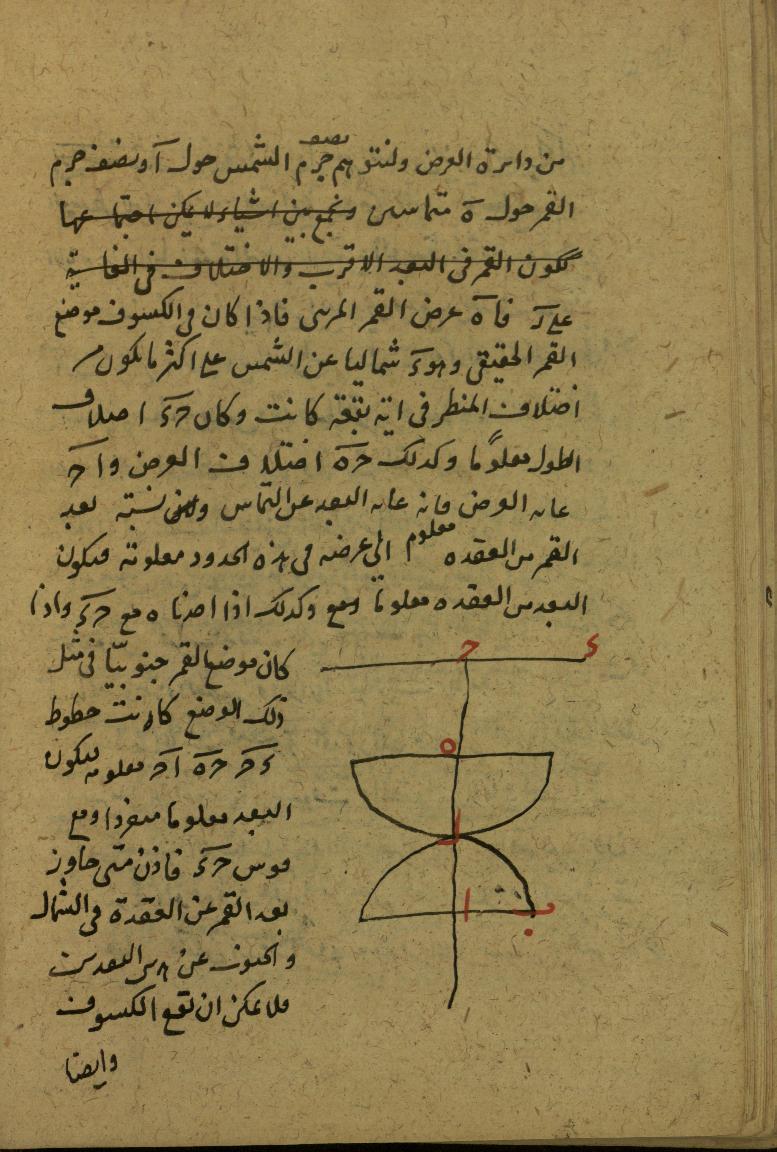 نصف
من دائرة العرض ولنتوهم جرم الشمس حول آ ونصف جرم
القمر حول ه متماسين ونجمع بين اشياء لا يمكن اجتماعها
لكون القمر فى البعد الاقرب والاختلاف فى الغاية
على ر فا ه عرض القمر المرئى فاذا كان فى الكسوف موضع
القمر الحقيقى وهو ء شماليا عن الشمس على اكثر ما يكون من
اختلاف المنظر فى اية بقعة كانت وكان ح ء اختلاف
الطول معلوما وكذلك ح ه اختلاف العرض و ا ح
غاية العرض فانه غاية البعد عن التماس نسبة بعد
القمر من العقدة الى عرضه فى هذه الحدود معلومة فيكون
معلوم
البعد من العقدة معلوما ومع وكذلك اذا اخذناه مع ح ء واذا
كان موضع القمر جنوبيا فى مثل
ذلك الوضع كانت خطوط
ء ح ح ه ا ح معلومة ليكون
البعد معلوما مفردا ومع
قوس ح ء فاذن متى جاوز
بعد القمر عن العقدة فى الشمال
والجنوب عن هذين البعدين
فلا يمكن ان تقع الكسوف
وايضا
ء ح
ه
ر
ا ب